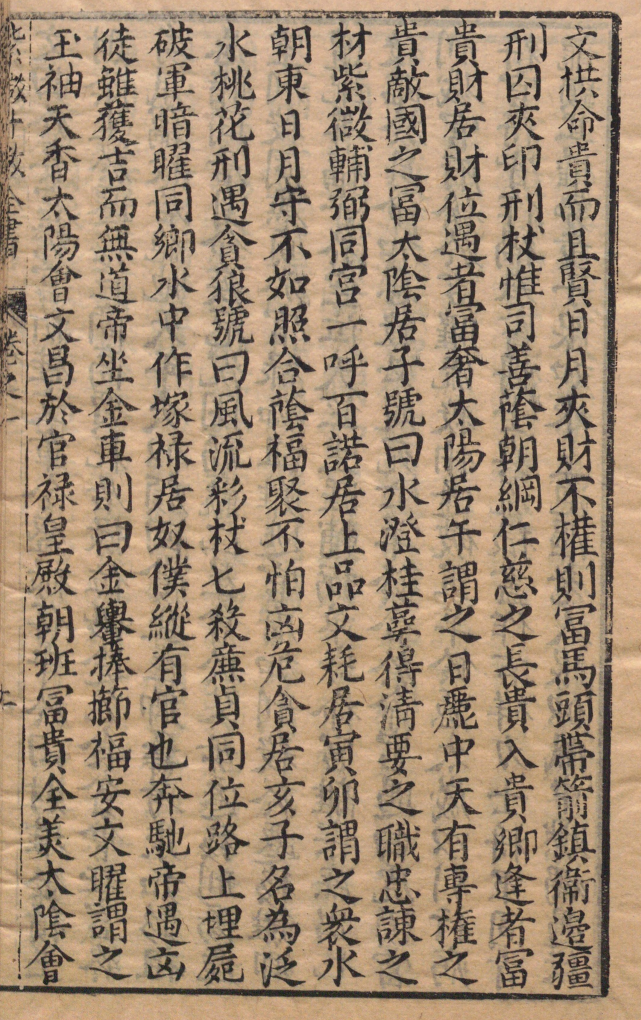 文拱命貴而且賢日月夾財不權則冨馬頭帶箭鎮衛邊疆
刑囚夾印刑杖惟司善蔭朝綱仁慈之長貴入貴鄉逢者冨
貴財居財位遇者冨奢太陽居午謂之日麗中天有專權之
貴敵國之冨太陰居子號曰水澄桂萼得清要之職忠諫之
材紫微輔弼同宫一呼百諾居上品文耗居寅卯謂之衆水
朝東日月守不如照合蔭福聚不怕凶危貪居亥子名為泛
水桃花刑遇貪狼號曰風流彩杖七殺亷貞同位路上埋屍
破軍暗曜同鄉水中作塚禄居奴僕縱有官也奔馳帝遇凶
徒雖獲吉而無道帝坐金車則曰金轝捧櫛福安文曜謂之
玉袖天香太陽會文昌於官禄皇殿朝班冨貴全美太陰會
紫微斗數全書 卷之一